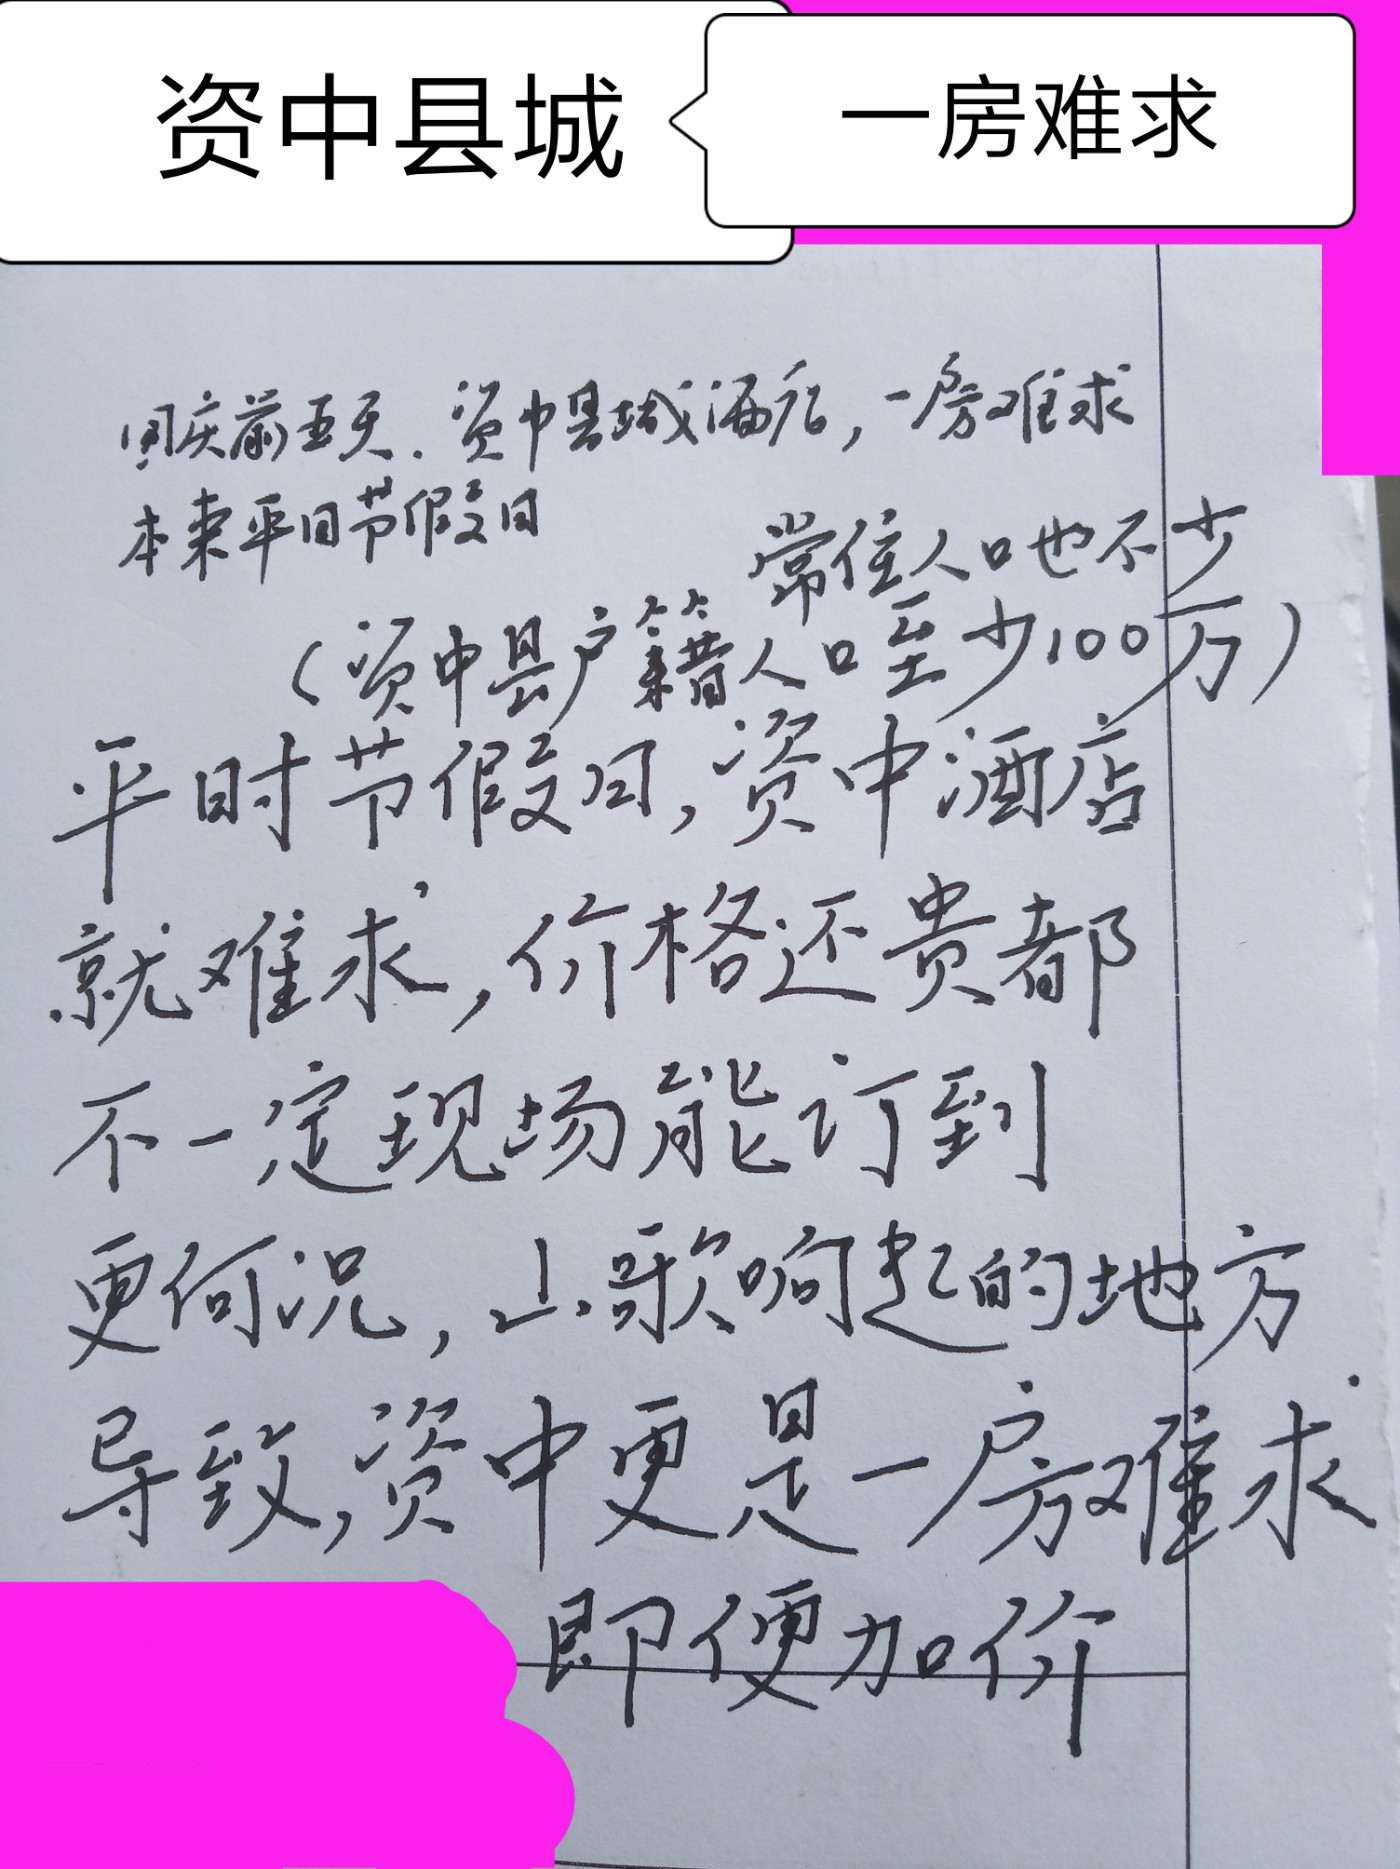 资中县城
一房难求
国庆前五天.资中县城酒店,一房难求
本来平日节假日
常住人口也不少
(资中县户籍人口至少100万)
平时节假日,资中酒店
就难求,价格还贵都
不一定现场能订到
更何况,山歌响起的地方
导致,资中更是一房难求
即便加价